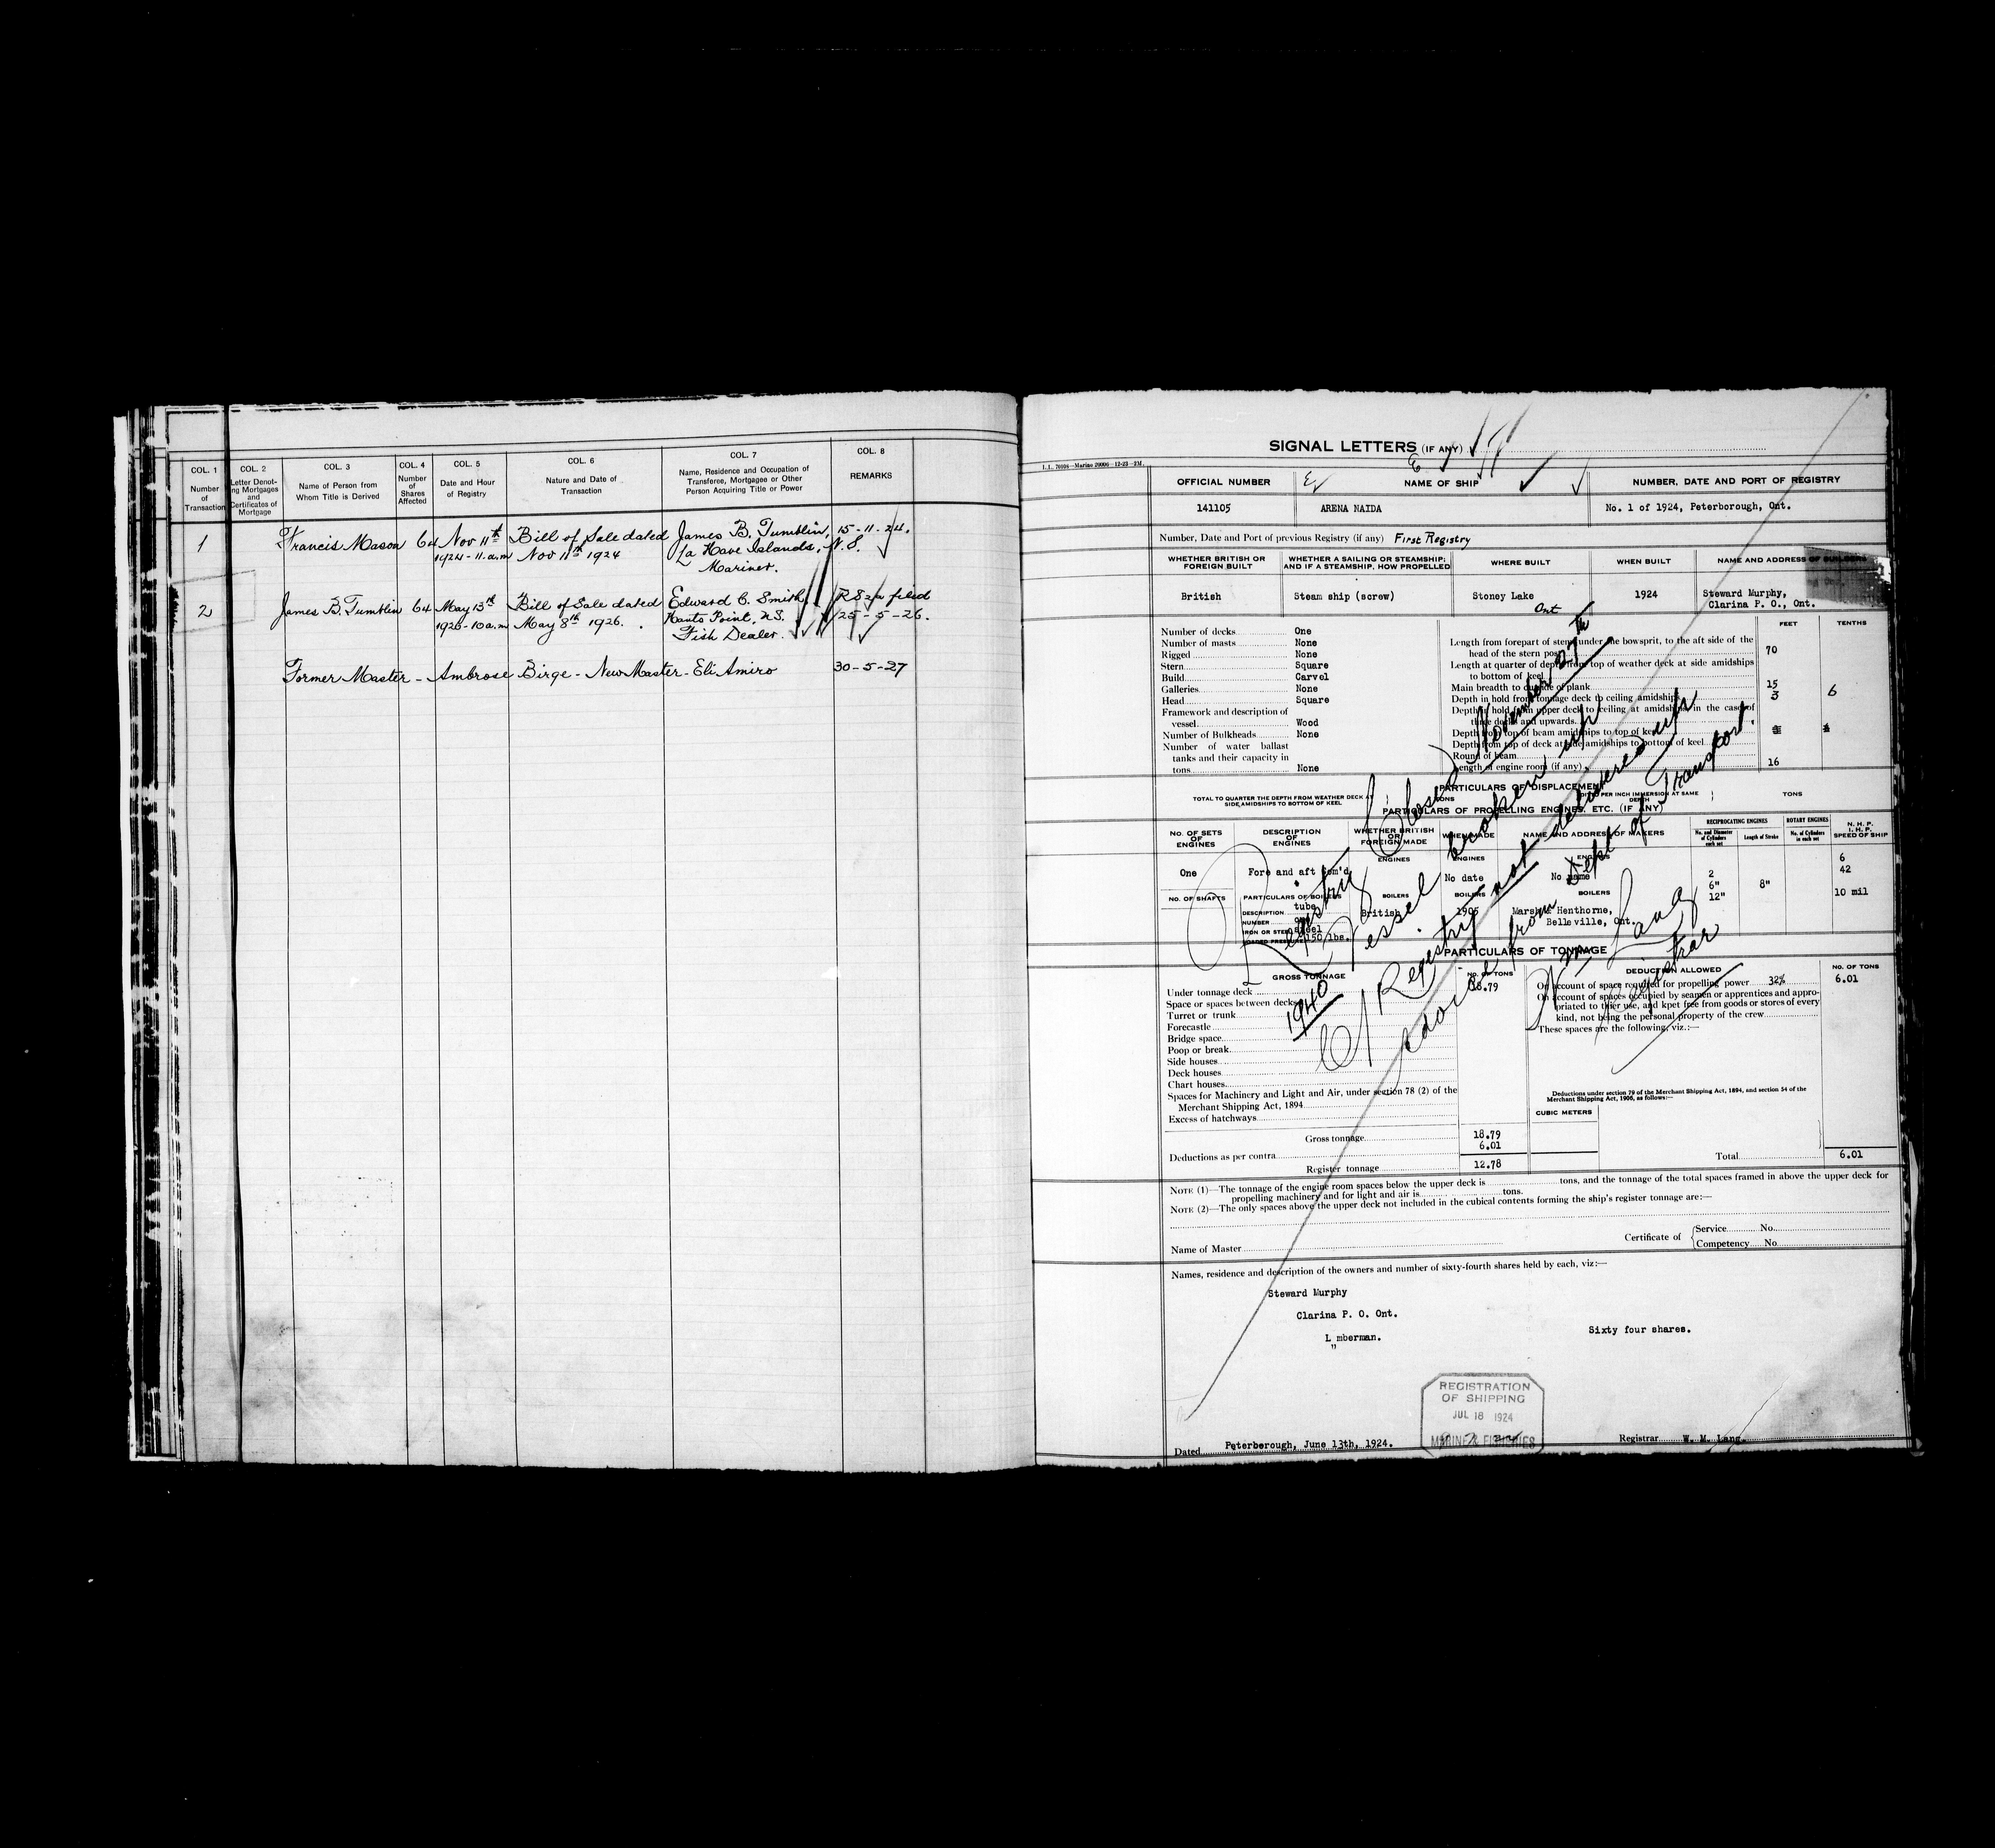 COL. 1
Number
of
Transaction
COL. 2
Letter Denot-
ing Mortgages
and
Certificates of
Mortgage
COL. 3
Name of Person from
Whom Title is Derived
COL. 4
Number
of
Shares
Affected
COL. 5
Date and Hour
of Registry
COL. 6
Nature and Date of
Transaction
COL. 7
Name, Residence and Occupation of
Transferee, Mortgagee or Other
Person Acquiring Title or Power
COL. 8
REMARKS
1 Francis Mason 64 Nov 11th Bill of Sale dated James B. Tumblin, 15-11-24.
1924-11.a.m Nov 11th 1924 La Have Islands, N.S.
Mariner.
2 James B. Tumblin 64 May 13th Bill of Sale dated Edward C. Smith,
1926-10a.m May 8th 1926. Hants Point, N.S. 25-5-26.
Fish Dealer.
Former Master - Ambrose Birge - New Master - Eli Amiro 30-5-27
SIGNAL LETTERS (IF ANY)
I.L. 70006—Marine 20006—12-23—2M.
OFFICIAL NUMBER NAME OF SHIP NUMBER, DATE AND PORT OF REGISTRY
141105 ARENA NAIDA No. 1 of 1924, Peterborough, Ont.
Number, Date and Port of previous Registry (if any) First Registry
WHETHER BRITISH OR
FOREIGN BUILT
WHETHER A SAILING OR STEAMSHIP;
AND IF A STEAMSHIP, HOW PROPELLED
WHERE BUILT
WHEN BUILT
NAME AND ADDRESS OF BUILDERS
British Steam ship (screw) Stoney Lake 1924 Steward Murphy,
Ont Clarina P. O., Ont.
Number of decks One
Number of masts None
Rigged None
Stern Square
Build Carvel
Galleries None
Head Square
Framework and description of
vessel Wood
Number of Bulkheads None
Number of water ballast
tanks and their capacity in
tons None
FEET TENTHS
Length from forepart of stem under the bowsprit, to the aft side of the
head of the stern post 70
Length at quarter of depth from top of weather deck at side amidships
to bottom of keel
Main breadth to outside of plank 15
Depth in hold from tonnage deck to ceiling amidships 3 6
Depth in hold from upper deck to ceiling at amidships in the case of
three decks and upwards
Depth from top of beam amidships to top of keel
Depth from top of deck at side amidships to bottom of keel
Round of beam
Length of engine room (if any) 16
PARTICULARS OF DISPLACEMENT
TOTAL TO QUARTER THE DEPTH FROM WEATHER DECK AT
SIDE AMIDSHIPS TO BOTTOM OF KEEL
TONS
DITTO PER INCH IMMERSION AT SAME
DEPTH
TONS
PARTICULARS OF PROPELLING ENGINES, ETC. (IF ANY)
NO. OF SETS
OF
ENGINES
DESCRIPTION
OF
ENGINES
WHETHER BRITISH
OR
FOREIGN MADE
WHEN MADE
NAME AND ADDRESS OF MAKERS
RECIPROCATING ENGINES
No. and Diameter
of Cylinders
each set
Length of Stroke
ROTARY ENGINES
No. of Cylinders
in each set
N. H. P.
I. H. P.
SPEED OF SHIP
ENGINES ENGINES ENGINES
One Fore and aft Com'd No date No name 2 6
6" 8" 42
12" 10 mil
NO. OF SHAFTS PARTICULARS OF BOILERS BOILERS BOILERS BOILERS
DESCRIPTION tube
NUMBER
IRON OR STEEL steel
LOADED PRESSURE 150 lbs.
British 1905 Marsh & Henthorne,
Belleville, Ont.
PARTICULARS OF TONNAGE
GROSS TONNAGE NO. OF TONS DEDUCTION ALLOWED NO. OF TONS
Under tonnage deck 18.79
Space or spaces between decks
Turret or trunk
Forecastle
Bridge space
Poop or break
Side houses
Deck houses
Chart houses
Spaces for Machinery and Light and Air, under section 78 (2) of the
Merchant Shipping Act, 1894
Excess of hatchways
Gross tonnage 18.79
Deductions as per contra 6.01
Register tonnage 12.78
On account of space required for propelling power 32% 6.01
On account of spaces occupied by seamen or apprentices and appro-
priated to thier use, and kpet free from goods or stores of every
kind, not being the personal property of the crew
These spaces are the following, viz.:—
Deductions under section 79 of the Merchant Shipping Act, 1894, and section 54 of the
Merchant Shipping Act, 1906, as follows:—
CUBIC METERS
Total 6.01
Registry Closed November 27th
1940 Vessel broken up
Cf Registry not delivered up
advice from Dept of Transport
Wm Lang
Registrar
NOTE (1)—The tonnage of the engine room spaces below the upper deck is tons, and the tonnage of the total spaces framed in above the upper deck for
propelling machinery and for light and air is tons.
NOTE (2)—The only spaces above the upper deck not included in the cubical contents forming the ship's register tonnage are:—
Name of Master
Certificate of
Service No.
Competency No
Names, residence and description of the owners and number of sixty-fourth shares held by each, viz:—
Steward Murphy
Clarina P. O. Ont.
L mberman. Sixty four shares.
REGISTRATION
OF SHIPPING
JUL 18 1924
MARINE & FISHERIES
Dated Peterborough, June 13th, 1924. Registrar W. M. Lang.